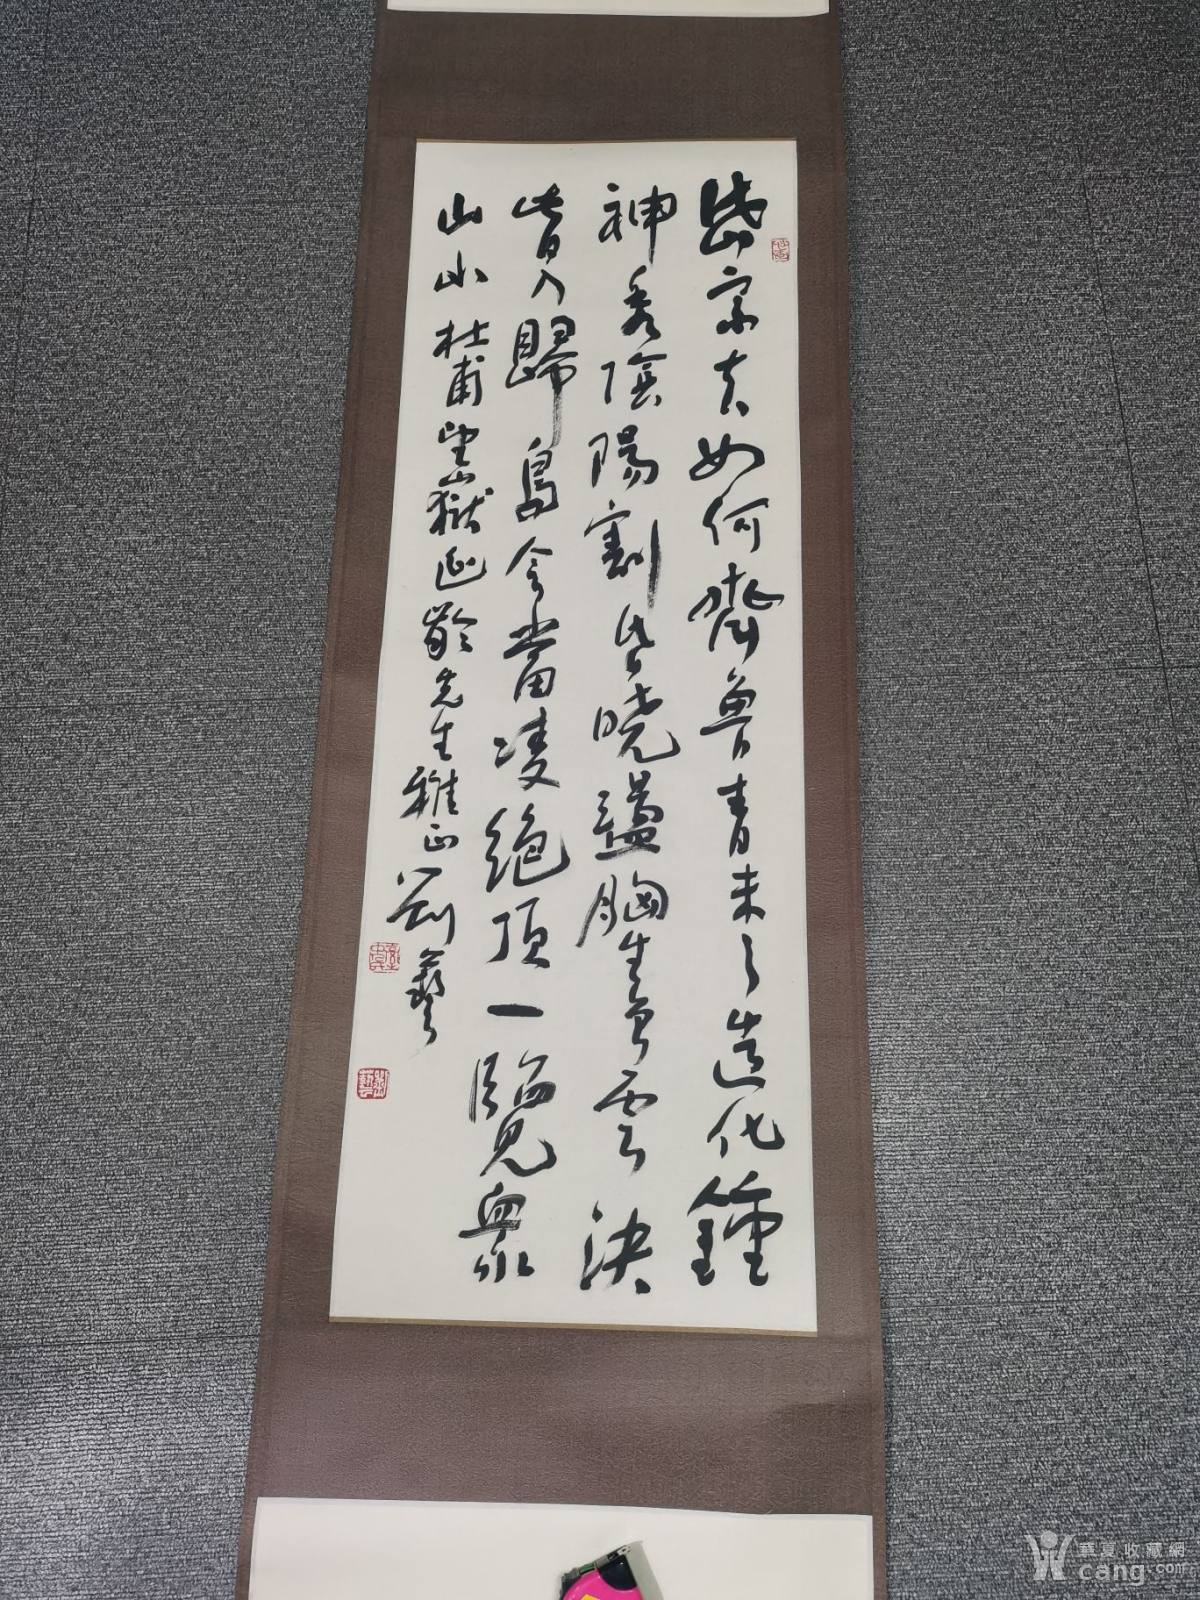 岱宗夫如何齊魯青未了造化鍾
神秀陰陽割昏曉盪胸生曾云決
眥入歸鳥會當凌絶頂一覽衆
山小 杜甫望嶽 延齡先生雅正 劉藝
劉藝
華夏收藏網
cang.com